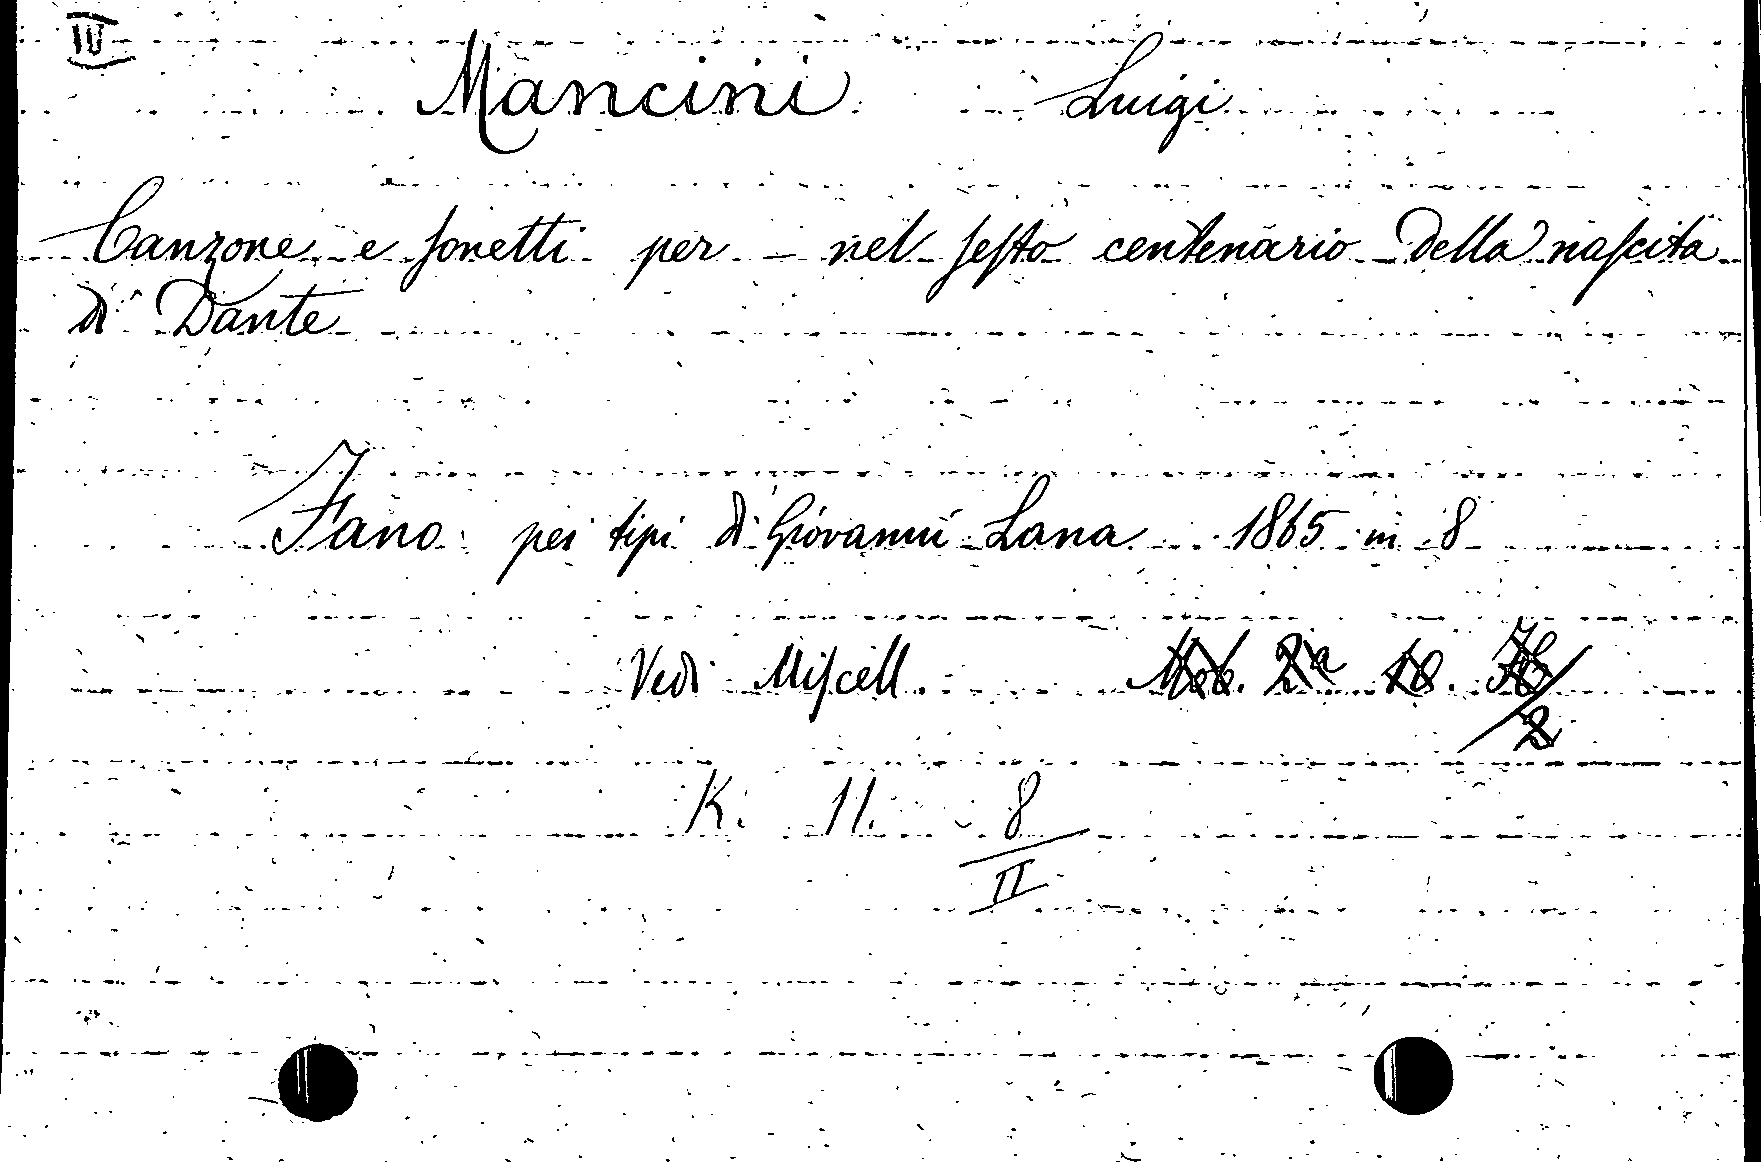 IV
Mancini Luigi
Canzone e sonetti per - nel sesto centenario della nascita
di Dante
Fano pei tipi di Giovanni Lana 1865 in 8
Vedi Miscell.
K. 11. 8/II